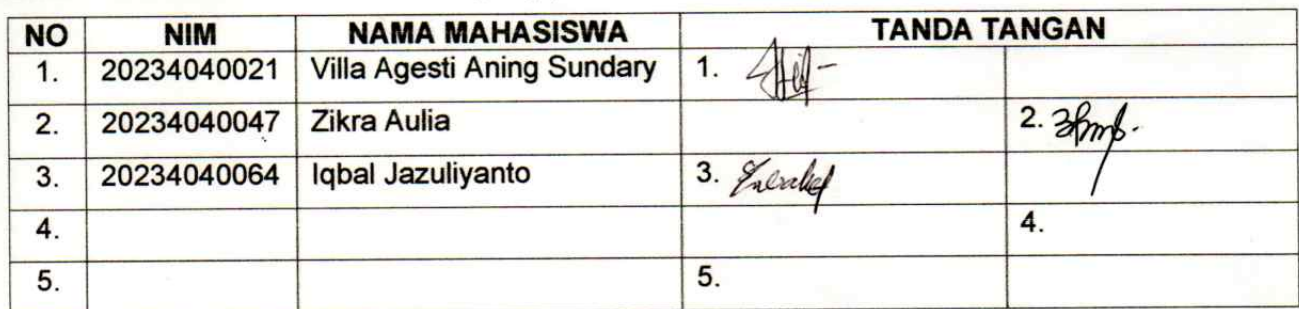 NO NIM NAMA MAHASISWA TANDA TANGAN
1. 20234040021 Villa Agesti Aning Sundary 1.
2. 20234040047 Zikra Aulia 2.
3. 20234040064 Iqbal Jazuliyanto 3.
4. 4.
5. 5.